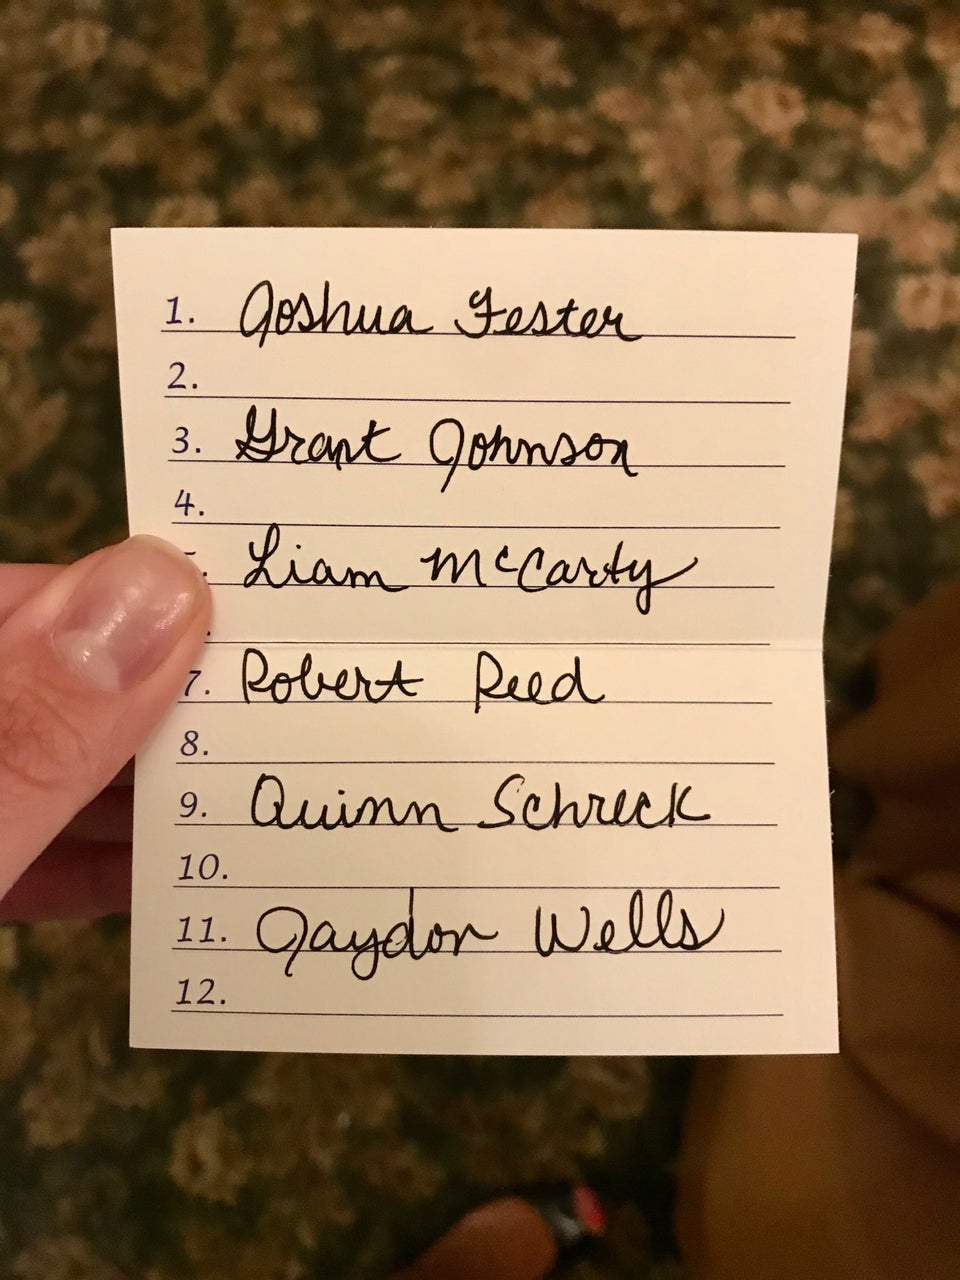 1. Joshua Fester
2.
3. Grant Johnson
4.
Liam McCarty
7. Robert Reed
8.
9. Quinn Schreck
10.
11. Jaydon Wells
12.